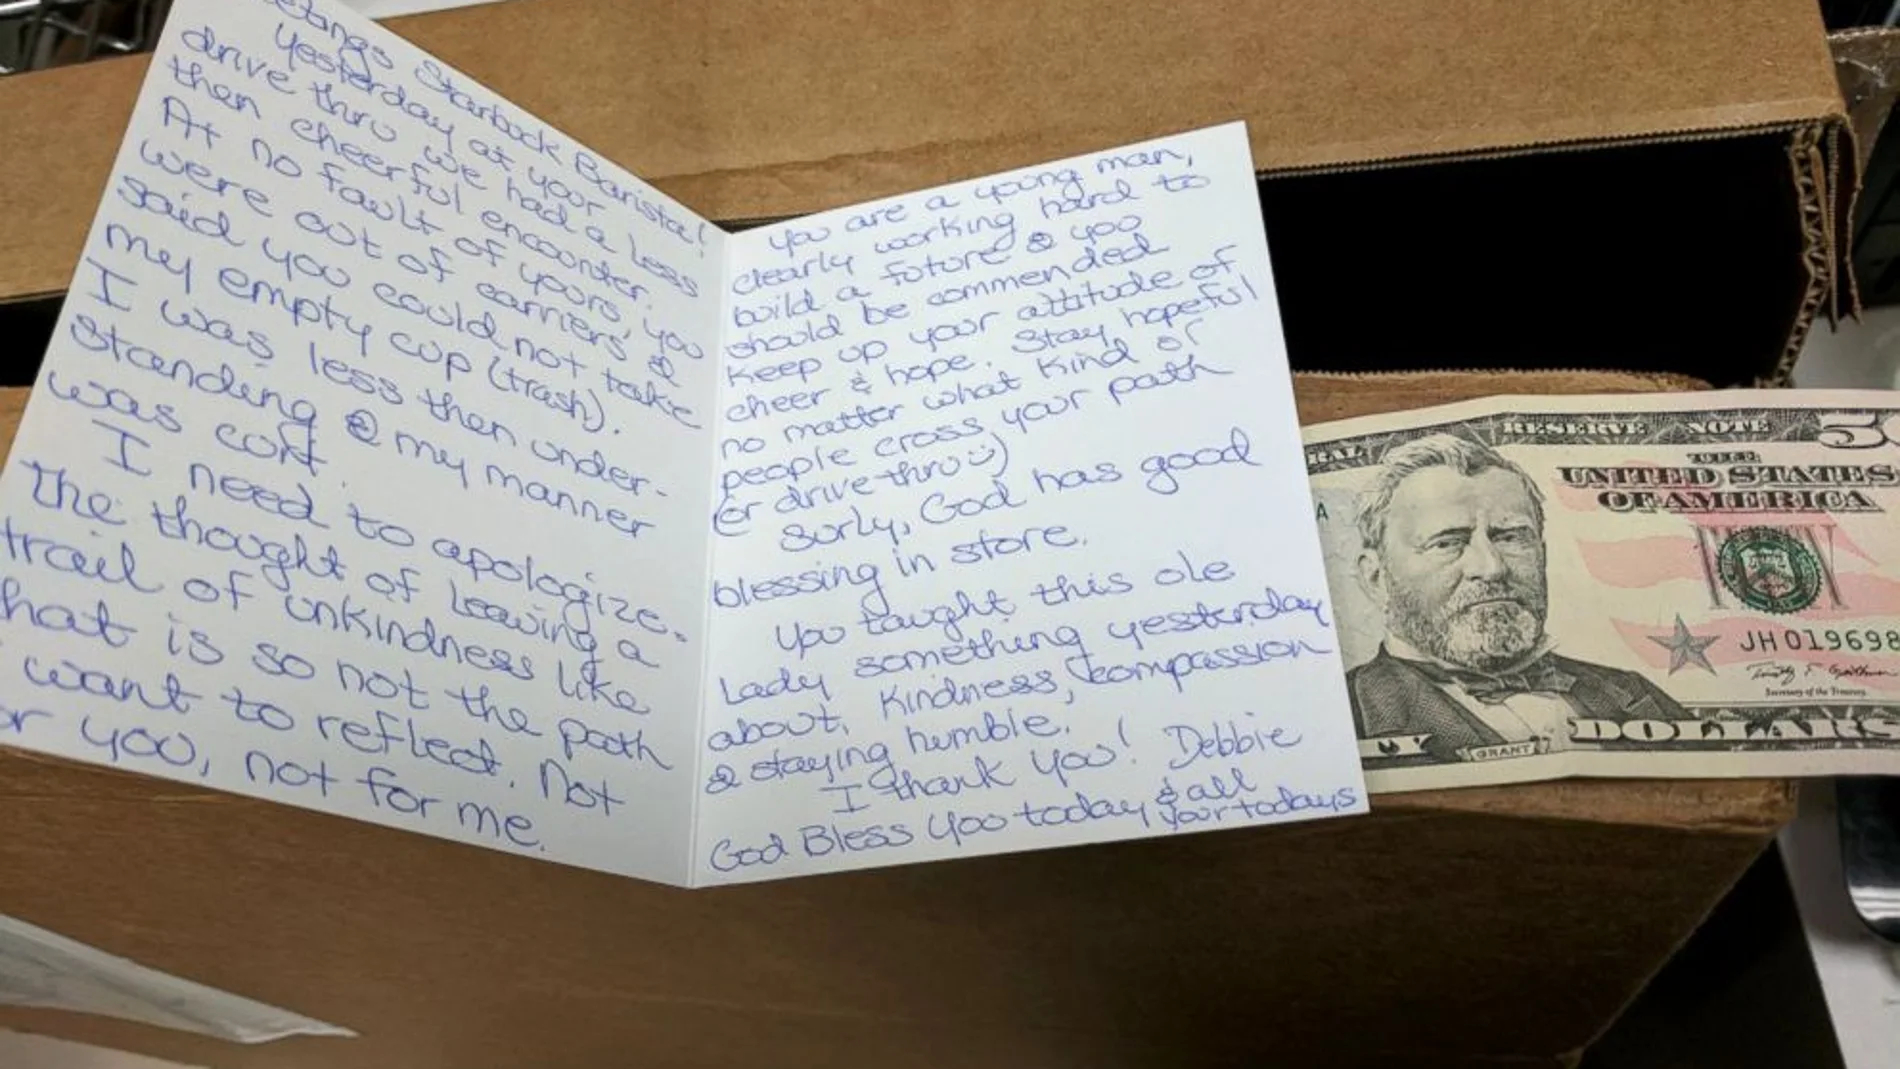 etings Starbuck Barista!
Yesterday at your
drive thru we had a less
then cheerful encounter.
At no fault of yours, you
were out of carriers &
said you could not take
my empty cup (trash).
I was less then under-
standing & my manner
was curt.
I need to apologize.
The thought of leaving a
trail of unkindness like
that is so not the path
I want to reflect. Not
or you, not for me.
You are a young man,
clearly working hard to
build a future & you
should be commended
Keep up your attitude of
cheer & hope. Stay hopeful
no matter what kind of
people cross your path
(er drive-thru :)
Surly, God has good
blessing in store.
You taught this ole
Lady something yesterday
about, Kindness, compassion
& staying humble.
I thank you! Debbie
God Bless you today & all
your todays
RAL RESERVE NOTE 50
THE
UNITED STATES
OF AMERICA
A
JH019698
Secretary of the Treasury.
GRANT
DOLLARS